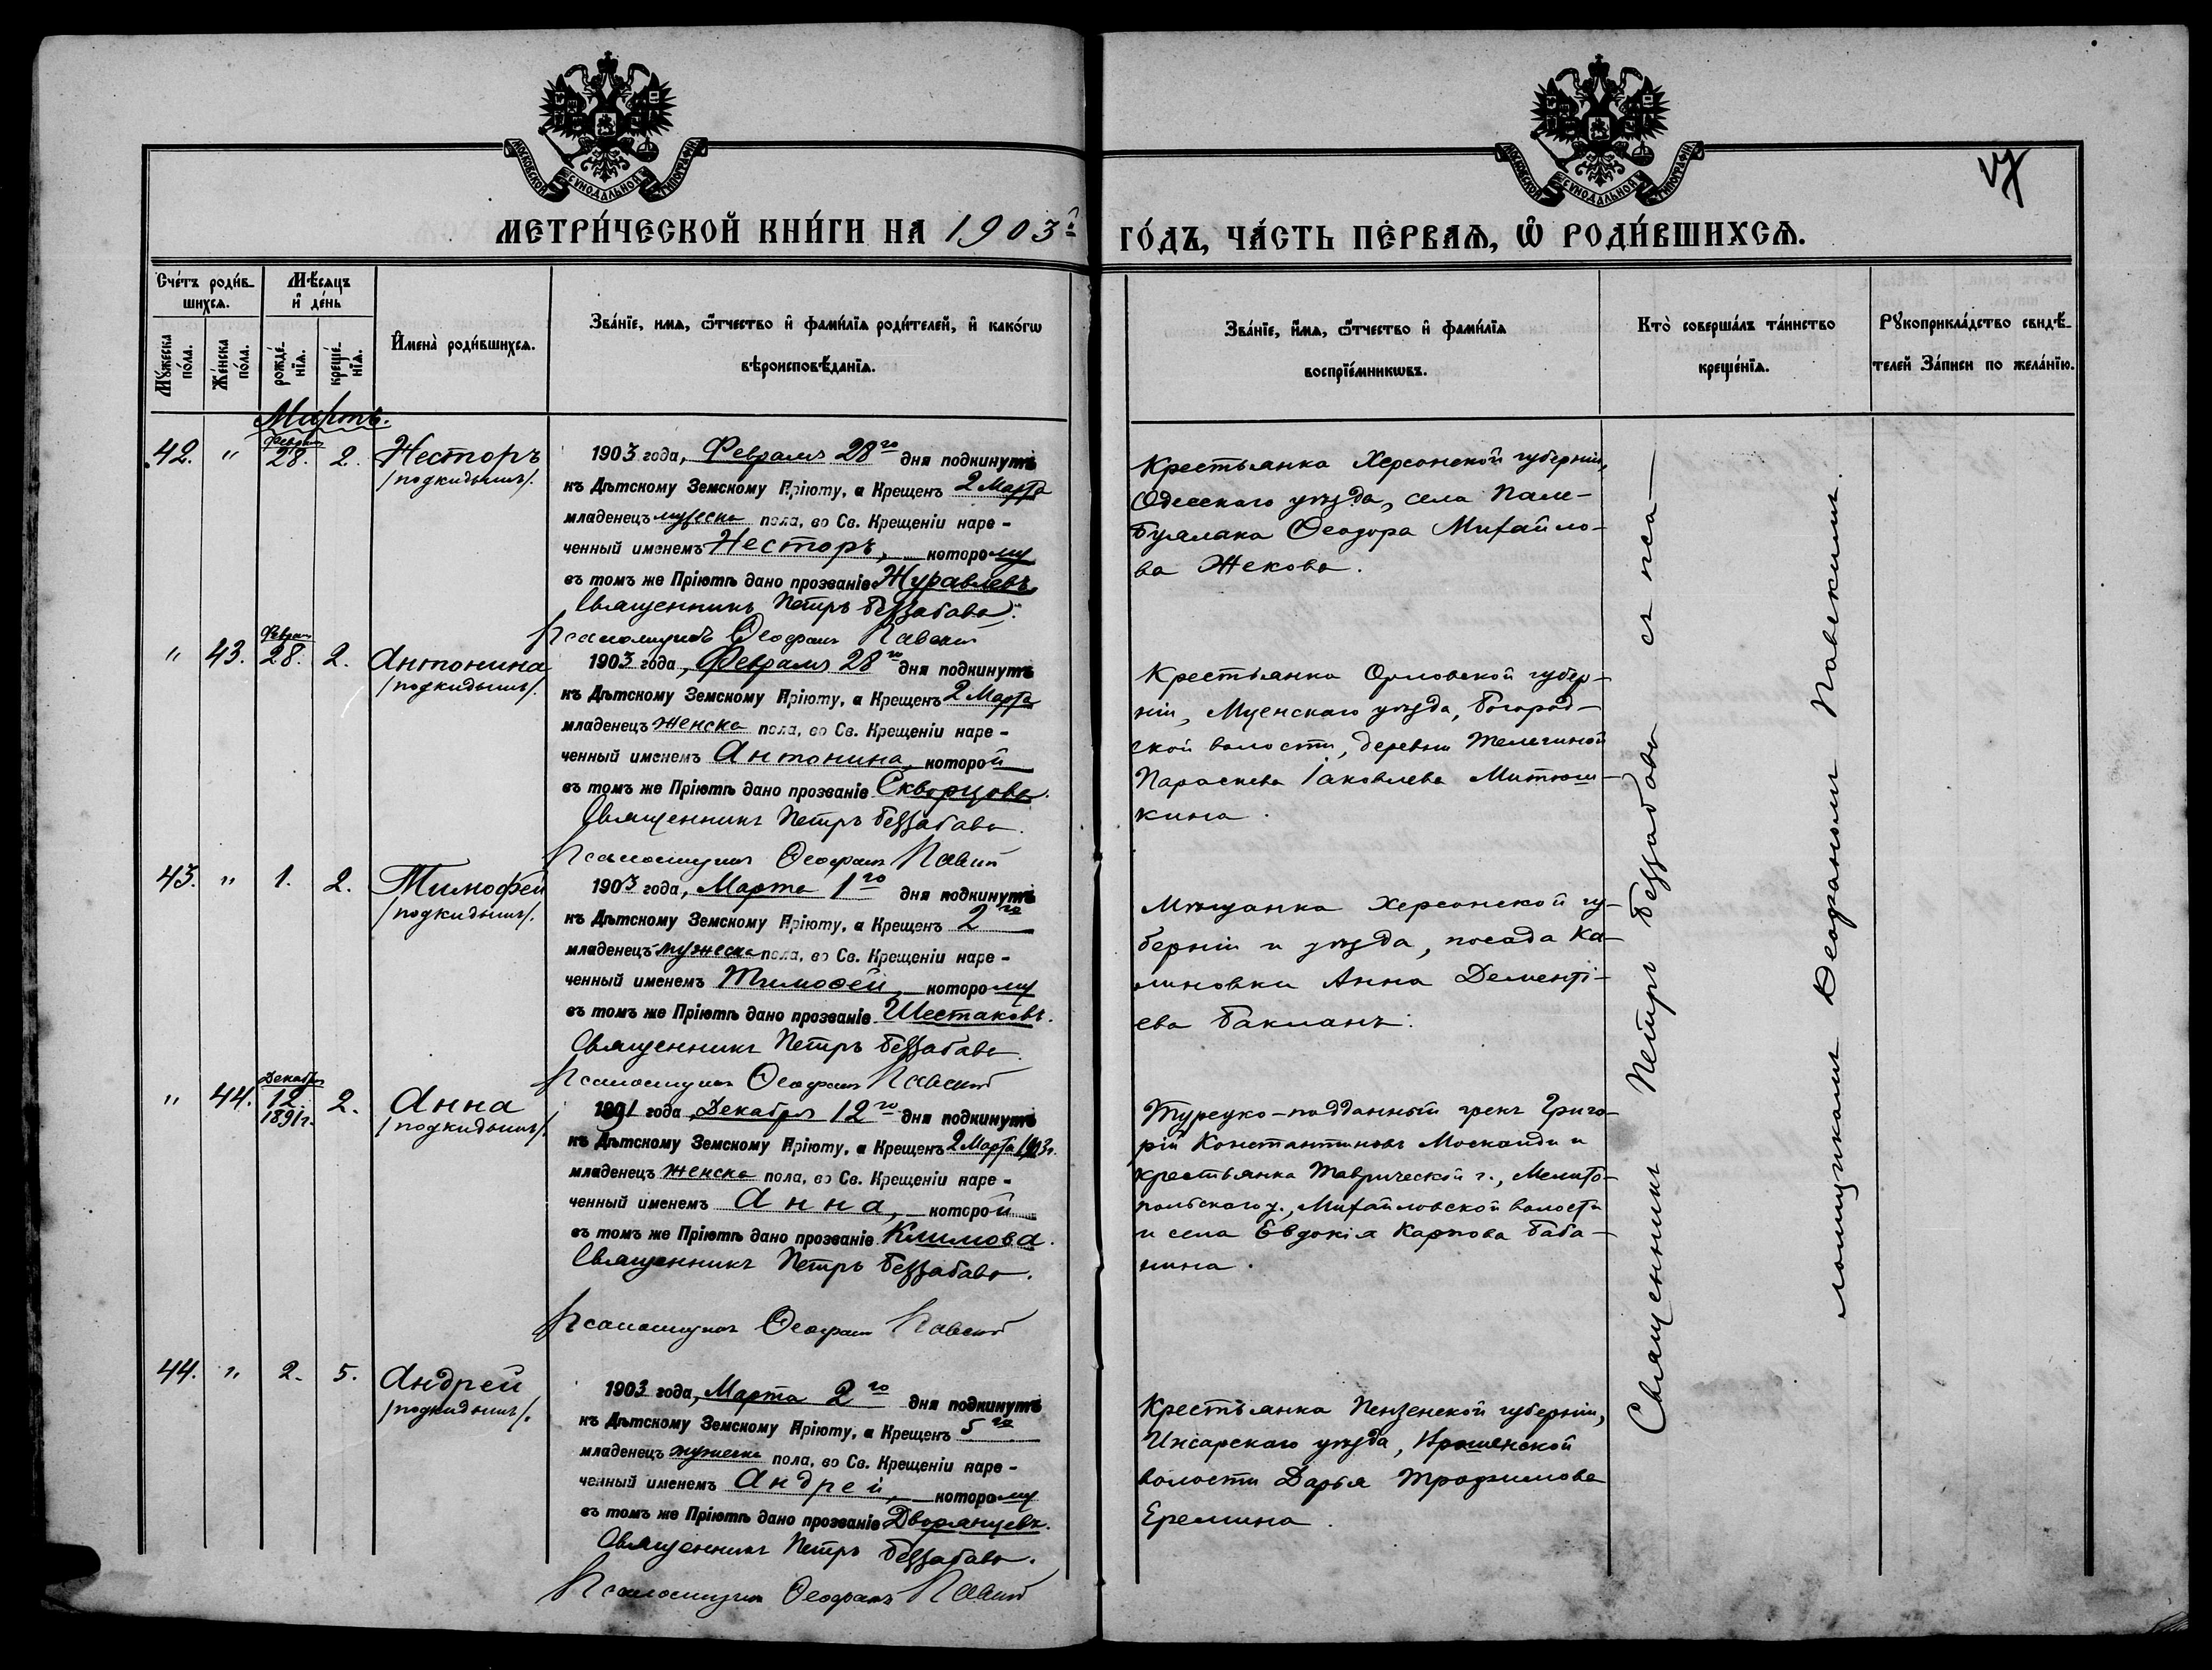 МОСКОВСКОЙ СѴНОДАЛЬНОЙ ТИПОГРАФІИ
МОСКОВСКОЙ СѴНОДАЛЬНОЙ ТИПОГРАФІИ
МЕТРИ́ЧЕСКОЙ КНИ́ГИ НА 1903й ГО́ДЪ, ЧА́СТЬ ПЕ́РВАѦ, Ѡ РОДИ́ВШИХСѦ.
Сче́тъ роди́в-
шихсѧ.
Мꙋ́жеска по́ла.
Же́нска по́ла.
Мѣ́сѧцъ
и де́нь
рожде́-
нїѧ.
креще́-
нїѧ.
И҆мена̀ роди́вшихсѧ.
Зва́нїе, имѧ, ѻ҆́тчество и҆ фами́лїѧ роди́телей, и҆ како́гѡ
вѣроисповѣ́данїѧ.
Зва́нїе, и҆́мѧ, ѻ҆́тчество и҆ фами́лїѧ
воспрїе́мникѡвъ.
Кто̀ соверша́лъ та́инство
креще́нїѧ.
Рꙋкоприкла́дство свидѣ́-
телей За́писи по жела́нїю.
Мартъ.
42. " Февраля 28. 2. Несторъ
/подкидышъ/.
1903 года, Февраля 28го дня подкинутъ
къ Дѣтскому Земскому Пріюту, а Крещенъ 2 Марта
младенецъ мужеска пола, во Св. Крещеніи наре-
ченный именемъ Несторъ, которому
въ томъ же Пріютѣ дано прозваніе Журавлевъ.
Священникъ Петръ Беззабава.
Псаломщикъ Ѳеофанъ Павскій
Крестьянка Херсонской губерніи,
Одесскаго уѣзда, села Пале-
Буялака Ѳеодора Михайло-
ва Жекова.
" 43. Февраля 28. 2. Антонина
/подкидышъ/.
1903 года, Февраля 28го дня подкинутъ
къ Дѣтскому Земскому Пріюту, а Крещенъ 2 Марта
младенецъ женска пола, во Св. Крещеніи наре-
ченный именемъ Антонина, которой
въ томъ же Пріютѣ дано прозваніе Скворцова.
Священникъ Петръ Беззабава.
Псаломщикъ Ѳеофанъ Павскій
Крестьянка Орловской губер-
ніи, Мценскаго уѣзда, Богород-
ской волости, деревни Телегиной
Параскева Іаковлева Митюш-
кина.
43. " 1. 2. Тимофей
/подкидышъ/.
1903 года, Марта 1го дня подкинутъ
къ Дѣтскому Земскому Пріюту, а Крещенъ 2го
младенецъ мужеска пола, во Св. Крещеніи наре-
ченный именемъ Тимоѳей, которому
въ томъ же Пріютѣ дано прозваніе Шестаковъ.
Священникъ Петръ Беззабава.
Псаломщикъ Ѳеофанъ Павскій
Мѣщанка Херсонской гу-
берніи и уѣзда, посада Ка-
линовки Анна Дементі-
ева Бакманъ.
" 44. Декабря 12. 1891г. 2. Анна
/подкидышъ/.
1891 года, Декабря 12го дня подкинутъ
къ Дѣтскому Земскому Пріюту, а Крещенъ 2 Марта 1903г.
младенецъ женска пола, во Св. Крещеніи наре-
ченный именемъ Анна, которой
въ томъ же Пріютѣ дано прозваніе Климова.
Священникъ Петръ Беззабава.
Псаломщикъ Ѳеофанъ Павскій
Турецко-подданный грекъ Григо-
рій Константиновъ Москанди и
крестьянка Таврической г., Мелито-
польскаго у., Михайловской волости
и села Евдокія Карпова Баба-
нина.
44. " 2. 5. Андрей
/подкидышъ/.
1903 года, Марта 2го дня подкинутъ
къ Дѣтскому Земскому Пріюту, а Крещенъ 5го
младенецъ мужеска пола, во Св. Крещеніи наре-
ченный именемъ Андрей, которому
въ томъ же Пріютѣ дано прозваніе Дворянцевъ.
Священникъ Петръ Беззабава.
Псаломщикъ Ѳеофанъ Павскій
Крестьянка Пензенской губерніи,
Инсарскаго уѣзда,
волости Дарья Трофимова
Еремина.
Священникъ Петръ Беззабава съ пса-
ломщикомъ Ѳеофаномъ Павскимъ.